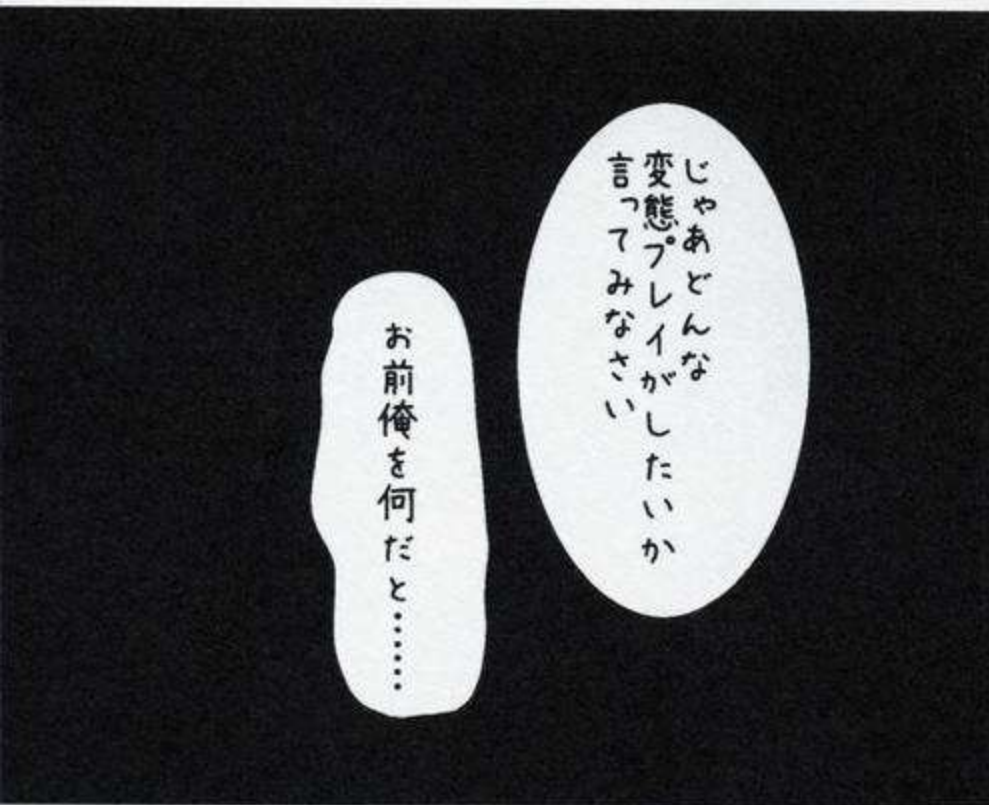 じゃあどんな
変態プレイがしたいか
言ってみなさい
お前俺を何だと………